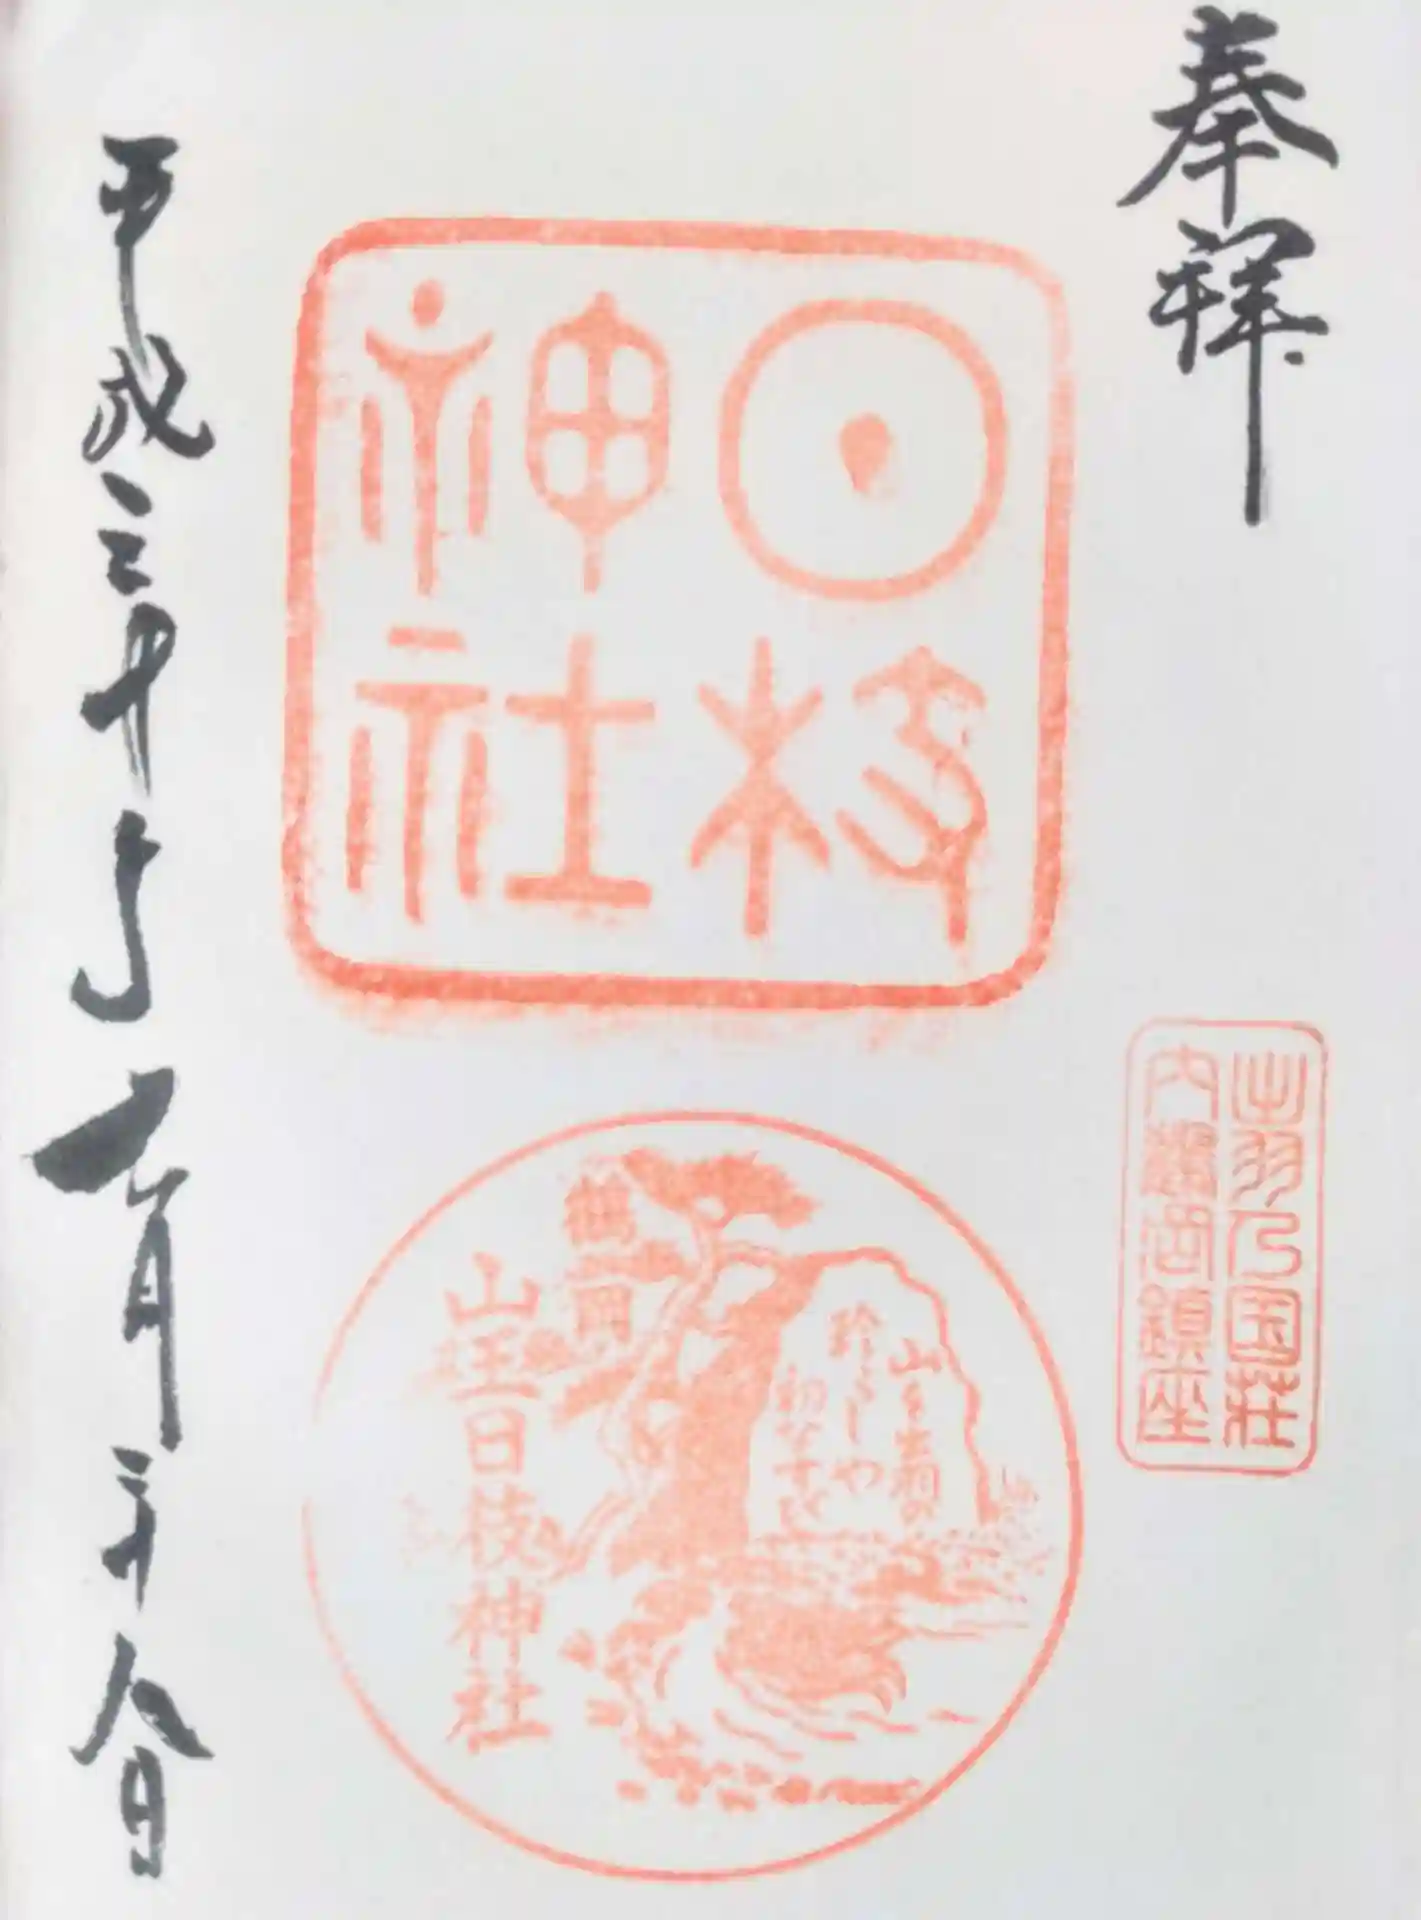 奉拝
出羽乃国荘
内鶴岡鎮座
日枝
神社
山を出羽の
珍らしや
初なすび
鶴岡
山王日枝神社
平成三十年九月二十八日